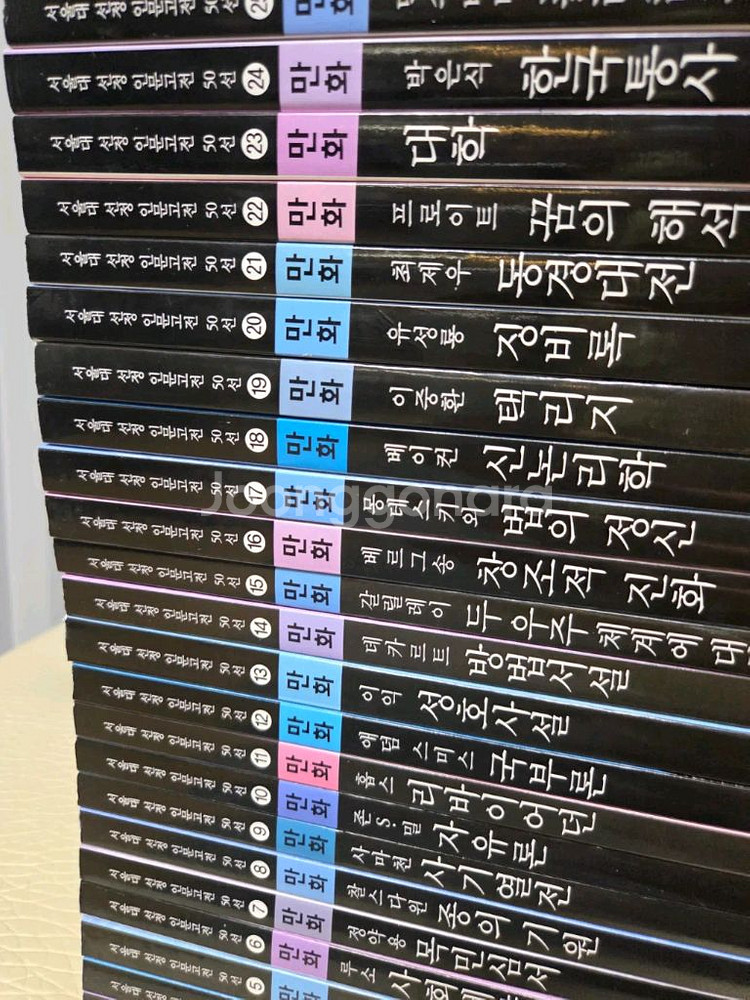 서울대 선정 인문고전 50선 24 만화 박은식 한국통사
서울대 선정 인문고전 50선 23 만화 대학
서울대 선정 인문고전 50선 22 만화 프로이트 꿈의 해석
서울대 선정 인문고전 50선 21 만화 최제우 동경대전
서울대 선정 인문고전 50선 20 만화 유성룡 징비록
서울대 선정 인문고전 50선 19 만화 이중환 택리지
서울대 선정 인문고전 50선 18 만화 베이컨 신논리학
서울대 선정 인문고전 50선 17 만화 몽테스키외 법의 정신
서울대 선정 인문고전 50선 16 만화 베르그송 창조적 진화
서울대 선정 인문고전 50선 15 만화 갈릴레이 두 우주 체계에 대
서울대 선정 인문고전 50선 14 만화 데카르트 방법서설
서울대 선정 인문고전 50선 13 만화 이익 성호사설
서울대 선정 인문고전 50선 12 만화 애덤 스미스 국부론
서울대 선정 인문고전 50선 11 만화 홉스 리바이어던
서울대 선정 인문고전 50선 10 만화 존 S. 밀 자유론
서울대 선정 인문고전 50선 9 만화 사마천 사기열전
서울대 선정 인문고전 50선 8 만화 찰스 다윈 종의 기원
서울대 선정 인문고전 50선 7 만화 정약용 목민심서
서울대 선정 인문고전 50선 6 만화 루소 사회
서울대 선정 인문고전 50선 5 만화
Joonggonara